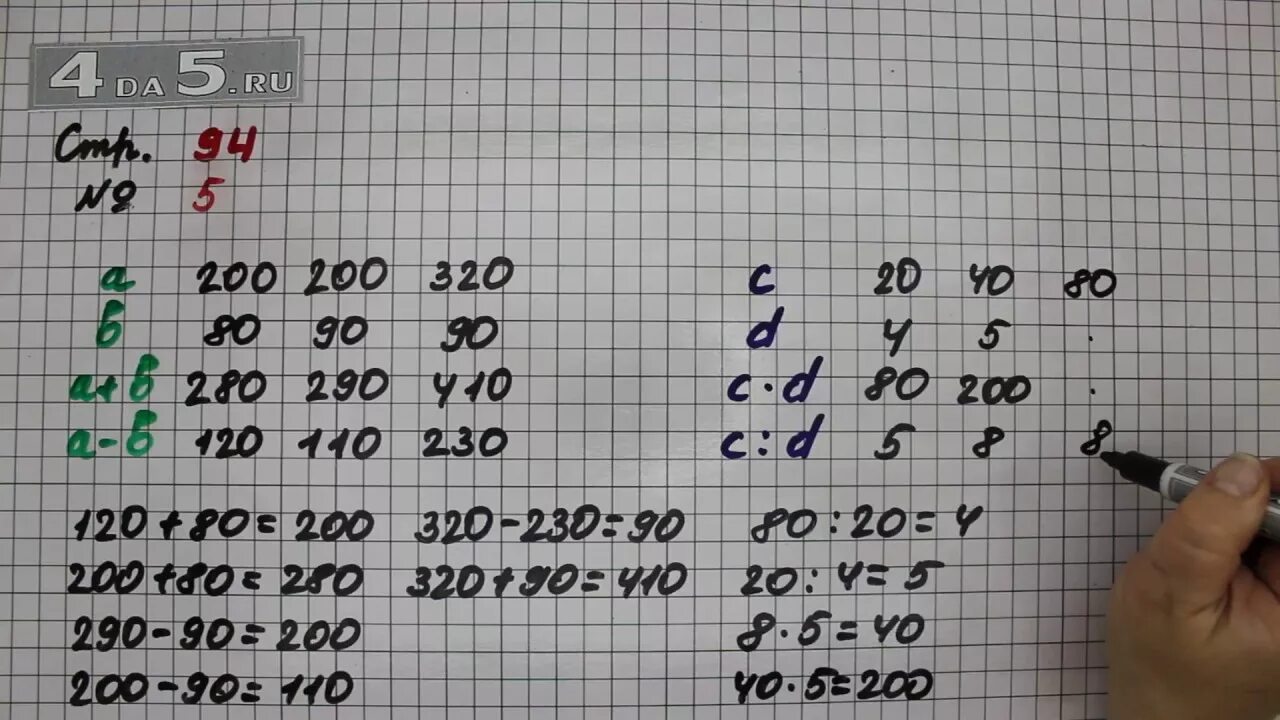 4DA5.RU
Стр. 94
№ 5
a 200 200 320
б 80 90 90
a+б 280 290 410
a-б 120 110 230
c 20 40 80
d 4 5 .
c·d 80 200 .
c:d 5 8 8
120+80=200 320-230=90
200+80=280 320+90=410
290-90=200
200-90=110
80:20=4
20:4=5
8·5=40
40·5=200